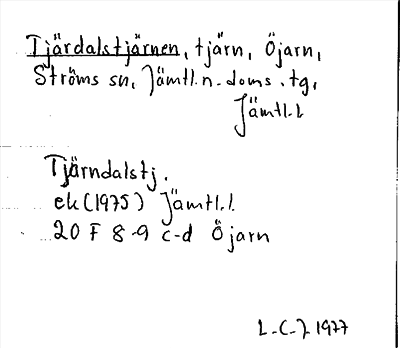 Tjärdalstjärnen, tjärn, Öjarn,
Ströms sn, Jämtl. n. doms. tg,
Jämtl. l
Tjärndalstj.
ek (1975) Jämtl. l.
20 F 8-9 c-d Öjarn
L-C-J 1977